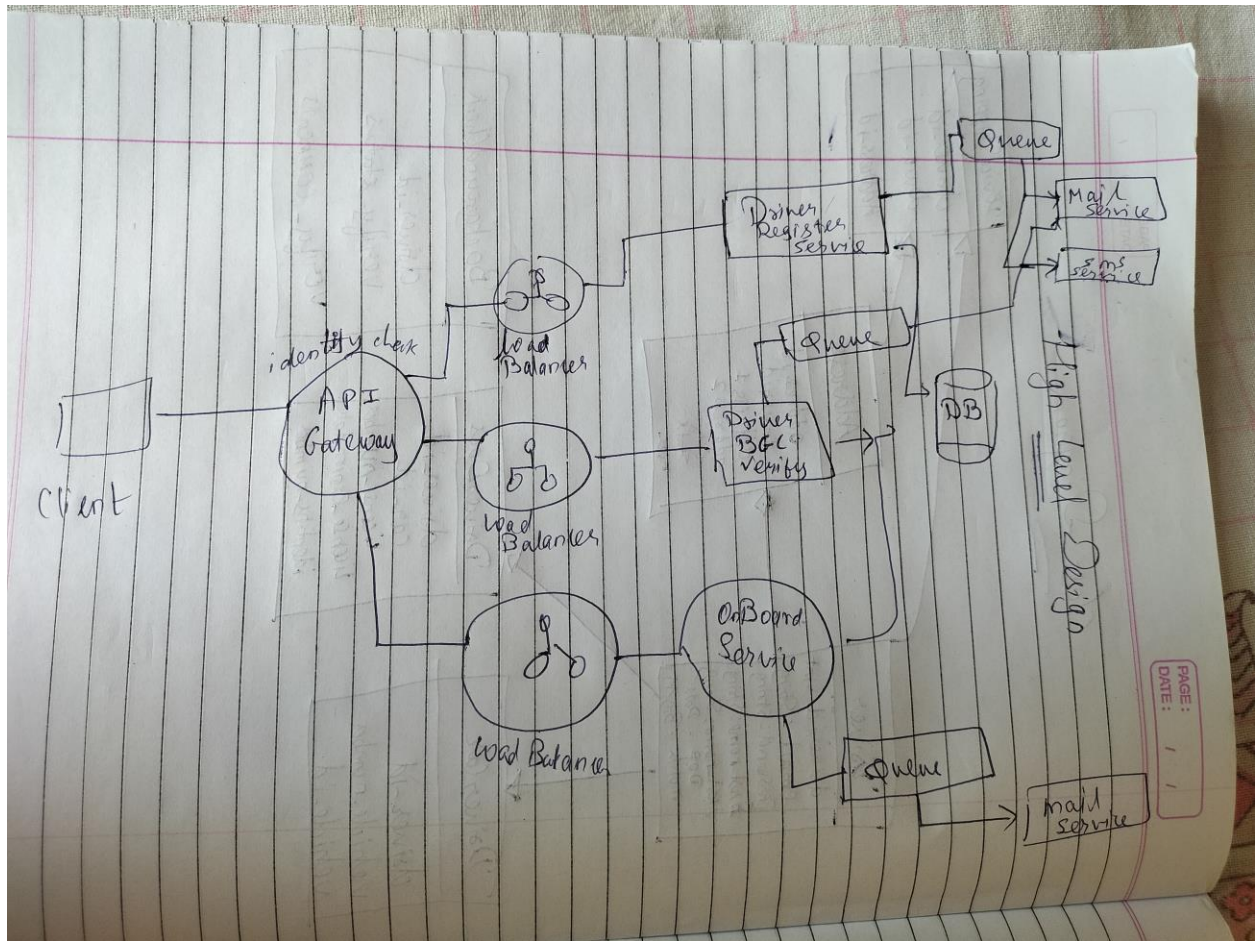 High Level Design
PAGE:
DATE: / /
Client
identity check
API
Gateway
Load
Balancer
Load
Balancer
Load Balancer
Driver
Register
Service
Driver
BGC
Verify
OnBoard
Service
Queue
Queue
Queue
Mail
Service
SMS
Service
DB
Mail
Service